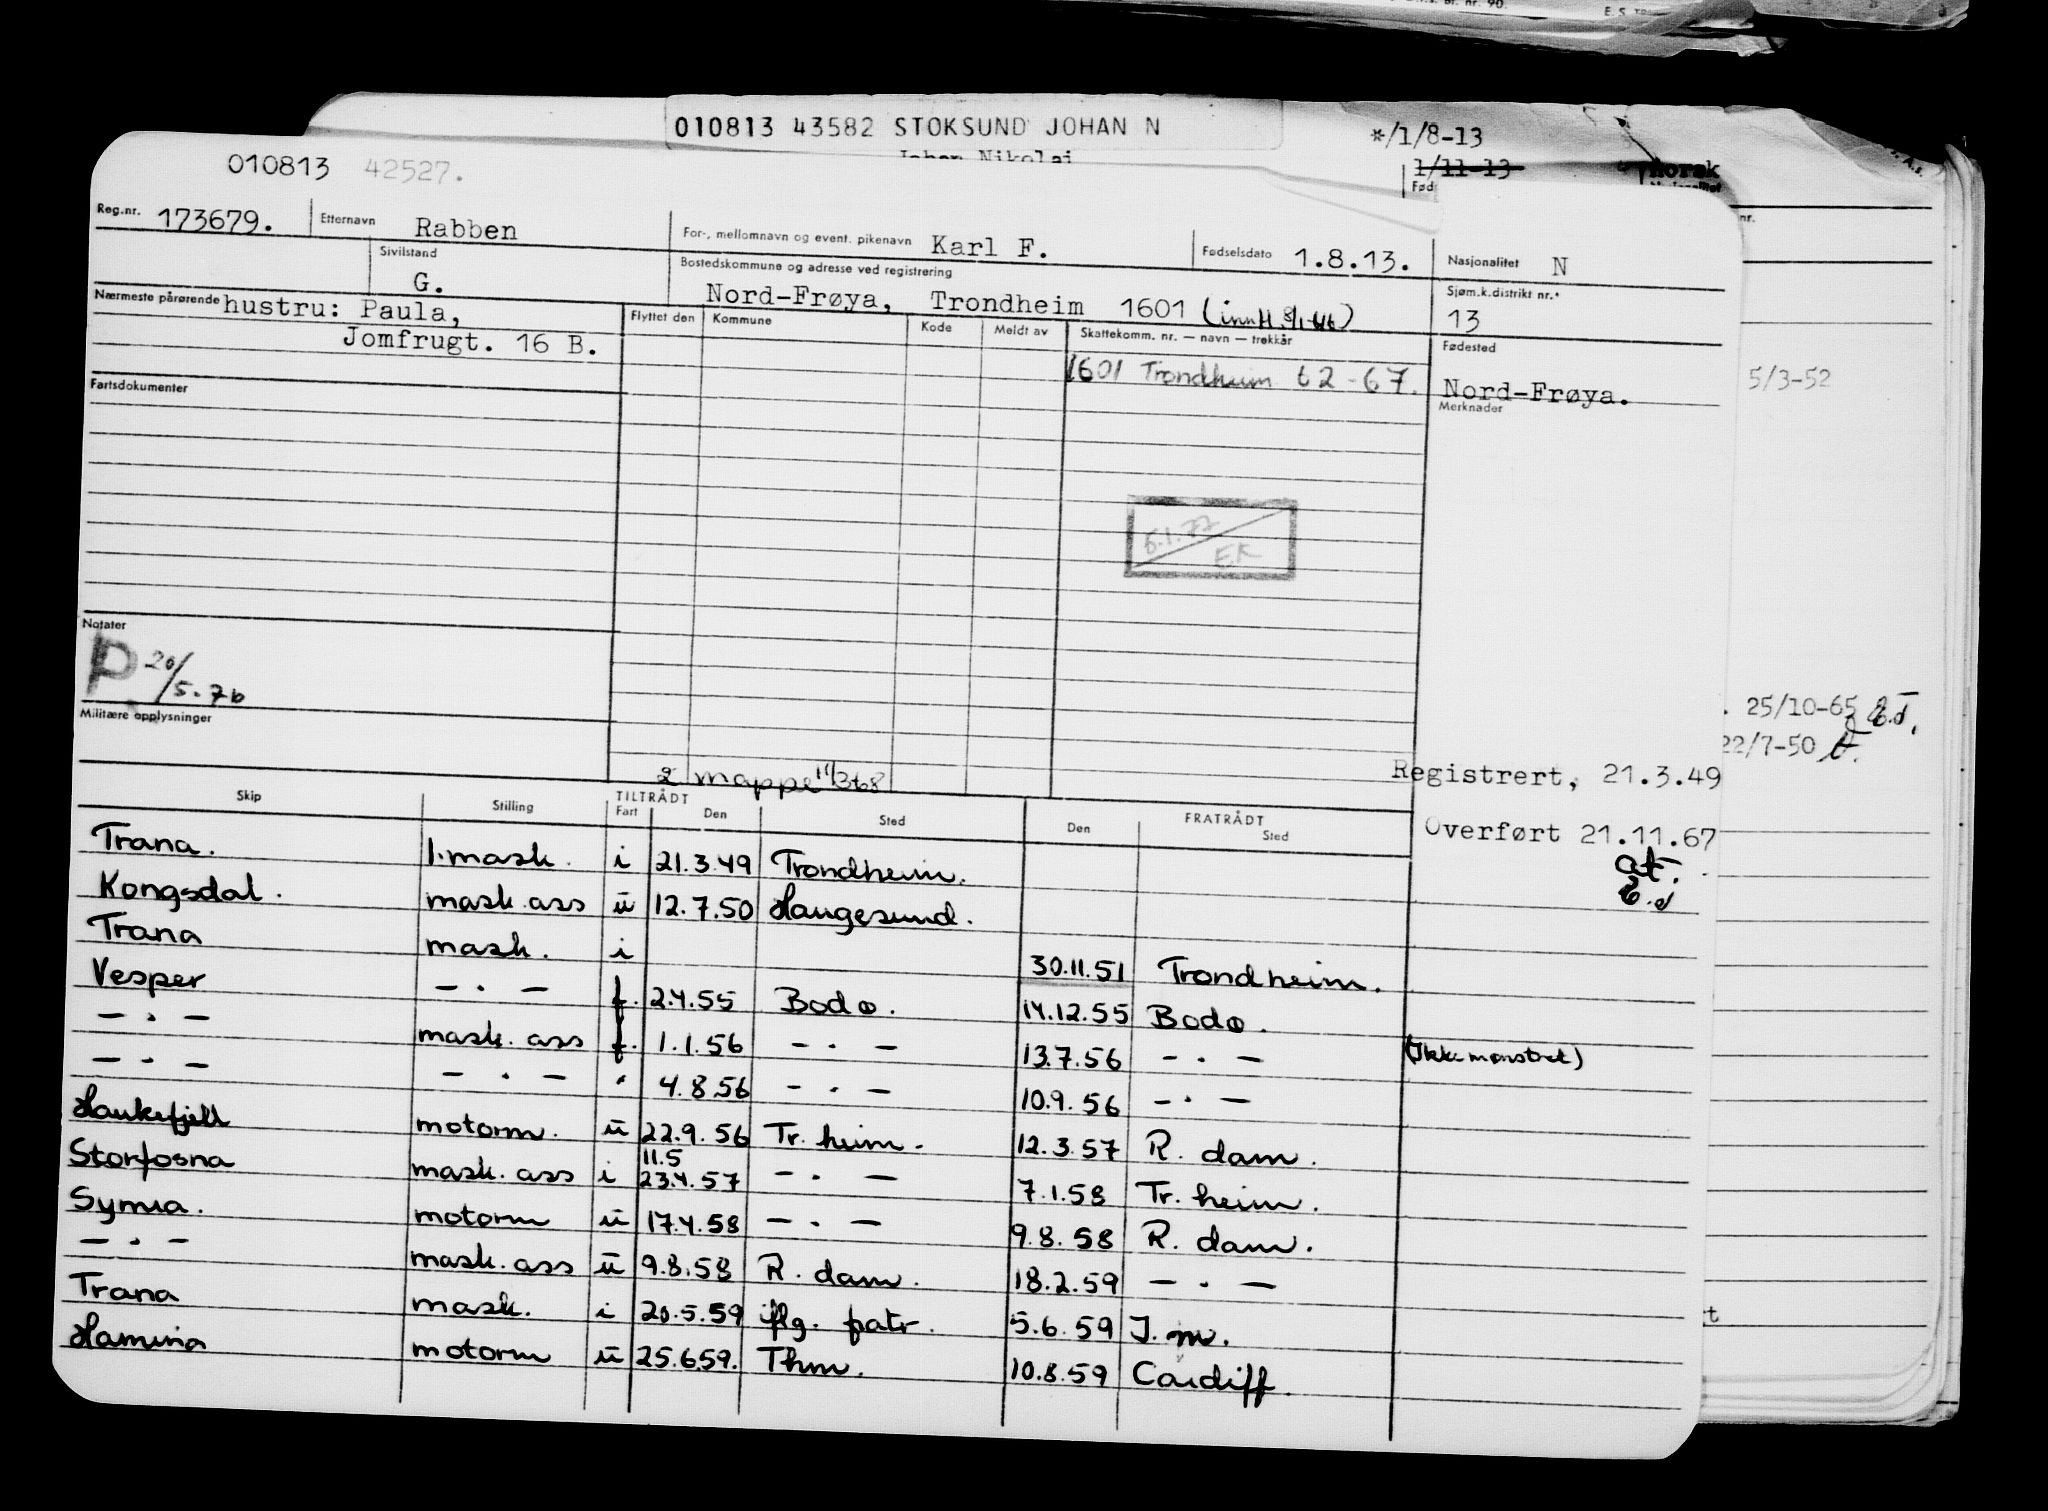 010813 43582 STOKSUND JOHAN N
*/1/8-13
1/11-13
Født
Norsk
010813 42527.
Reg.nr. 173679. Etternavn Rabben For-, mellomnavn og event. pikenavn Karl F. Fødselsdato 1.8.13. Nasjonalitet N
Sivilstand G. Bostedskommune og adresse ved registrering Nord-Frøya, Trondheim 1601 Sjøm.k.distrikt nr.* 13
Nærmeste pårørende hustru: Paula,
Jomfrugt. 16 B.
Flyttet den Kommune Kode Meldt av Skattekomm. nr. — navn — trekkår Fødested
1601 Trondheim 62-67. Nord-Frøya.
Fartsdokumenter Merknader
5/3-52
6.1.77
EK
Notater
P 20/5.76
Militære opplysninger
25/10-65
22/7-50
2 mappe 11/368
Registrert, 21.3.49
Overført 21.11.67
at.
Skip Stilling TILTRÅDT Fart Den Sted FRATRÅDT Den Sted
Trana. 1.mask. i 21.3.49 Trondheim.
Kongsdal. mask ass u 12.7.50 Haugesund.
Trana mask. i 30.11.51 Trondheim.
Vesper — . — f. 2.4.55 Bodø. 14.12.55 Bodø.
— . — mask. ass f. 1.1.56 — . — 13.7.56 — . — (Ikke mønstret)
— . — — . — 4.8.56 — . — 10.9.56 — . —
Haukefjell motorm. u 22.9.56 Tr. heim. 12.3.57 R. dam.
11.5
Storfosna mask. ass i 23.4.57 — . — 7.1.58 Tr. heim.
Symra. motorm u 17.4.58 — . — 9.8.58 R. dam.
— . — mask. ass u 9.8.58 R. dam. 18.2.59 — . —
Trana mask. i 20.5.59 iflg. patr. 5.6.59 I. m.
Hamina motorm u 25.6.59. Thm. 10.8.59 Cardiff.